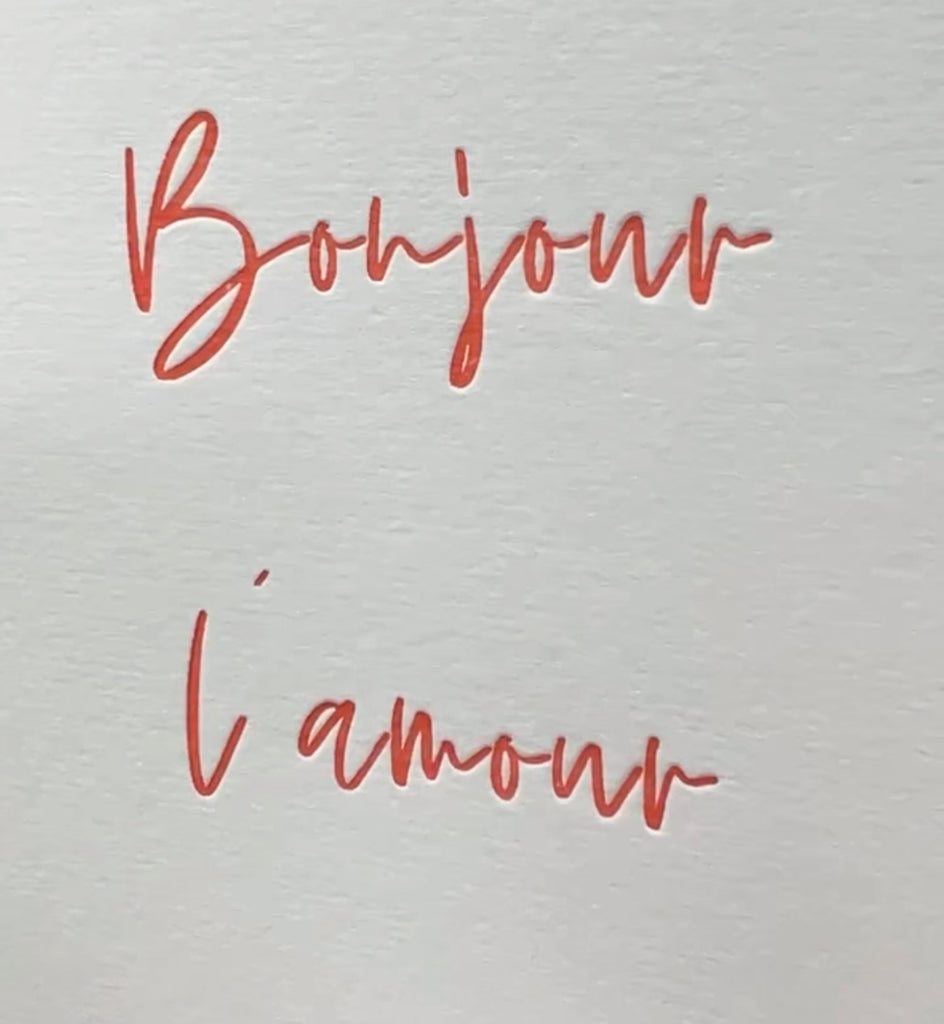 Bonjour
l'amour